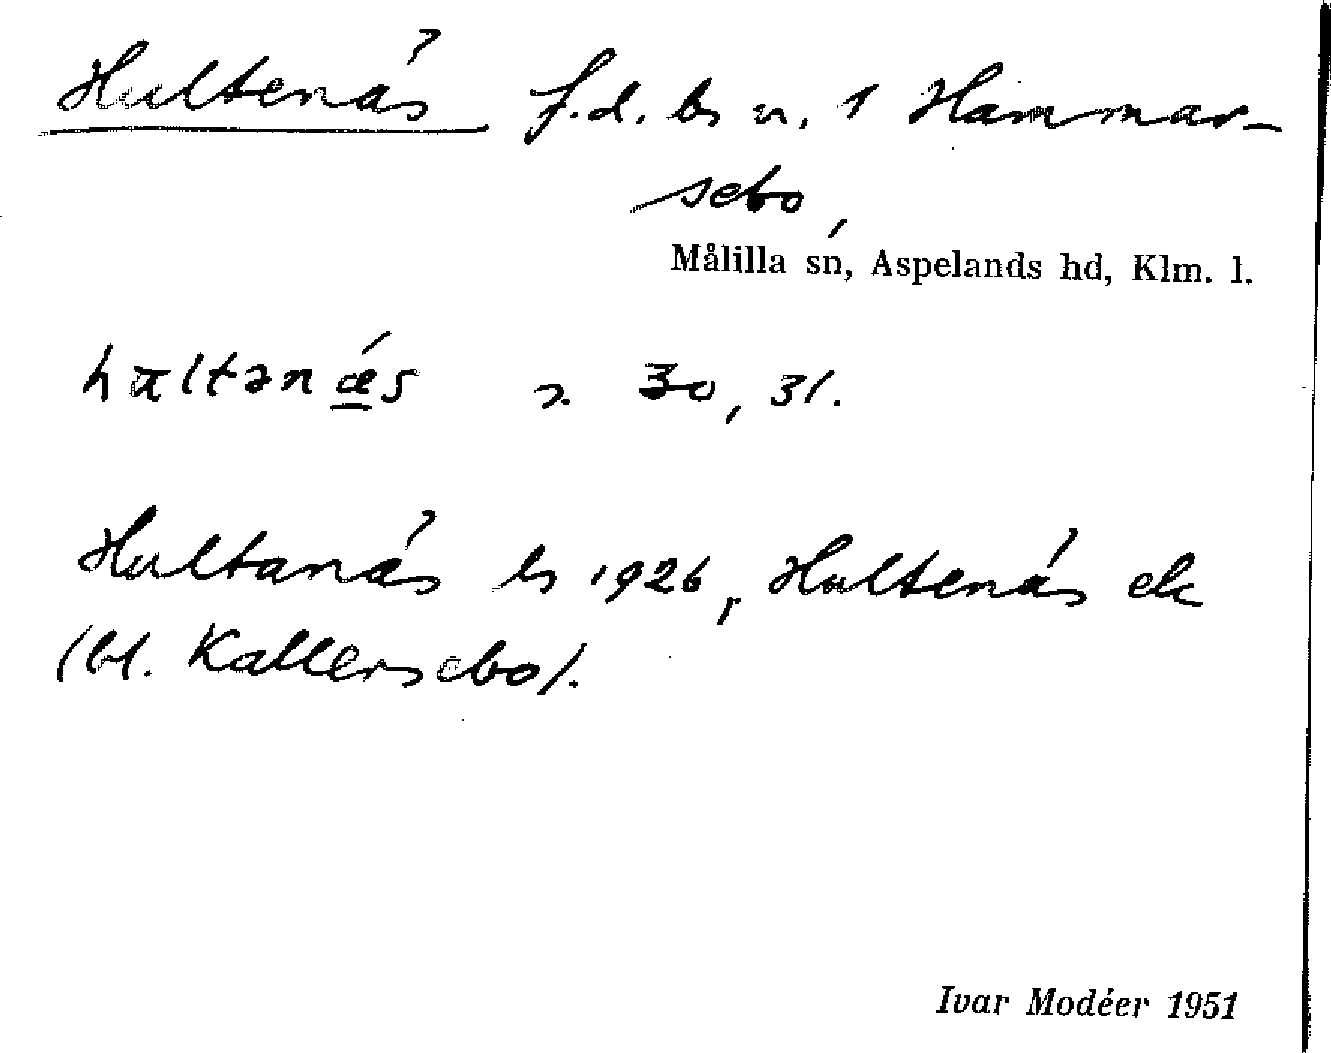 Hultenäs f.d. ls u. 1 Hammar-
sebo,
Målilla sn, Aspelands hd, Klm. l.
hultənæ̲s 2. 30, 31.
Hultanäs ls 1926, Hultenäs ek
(bl. Kallersebo).
Ivar Modéer 1951